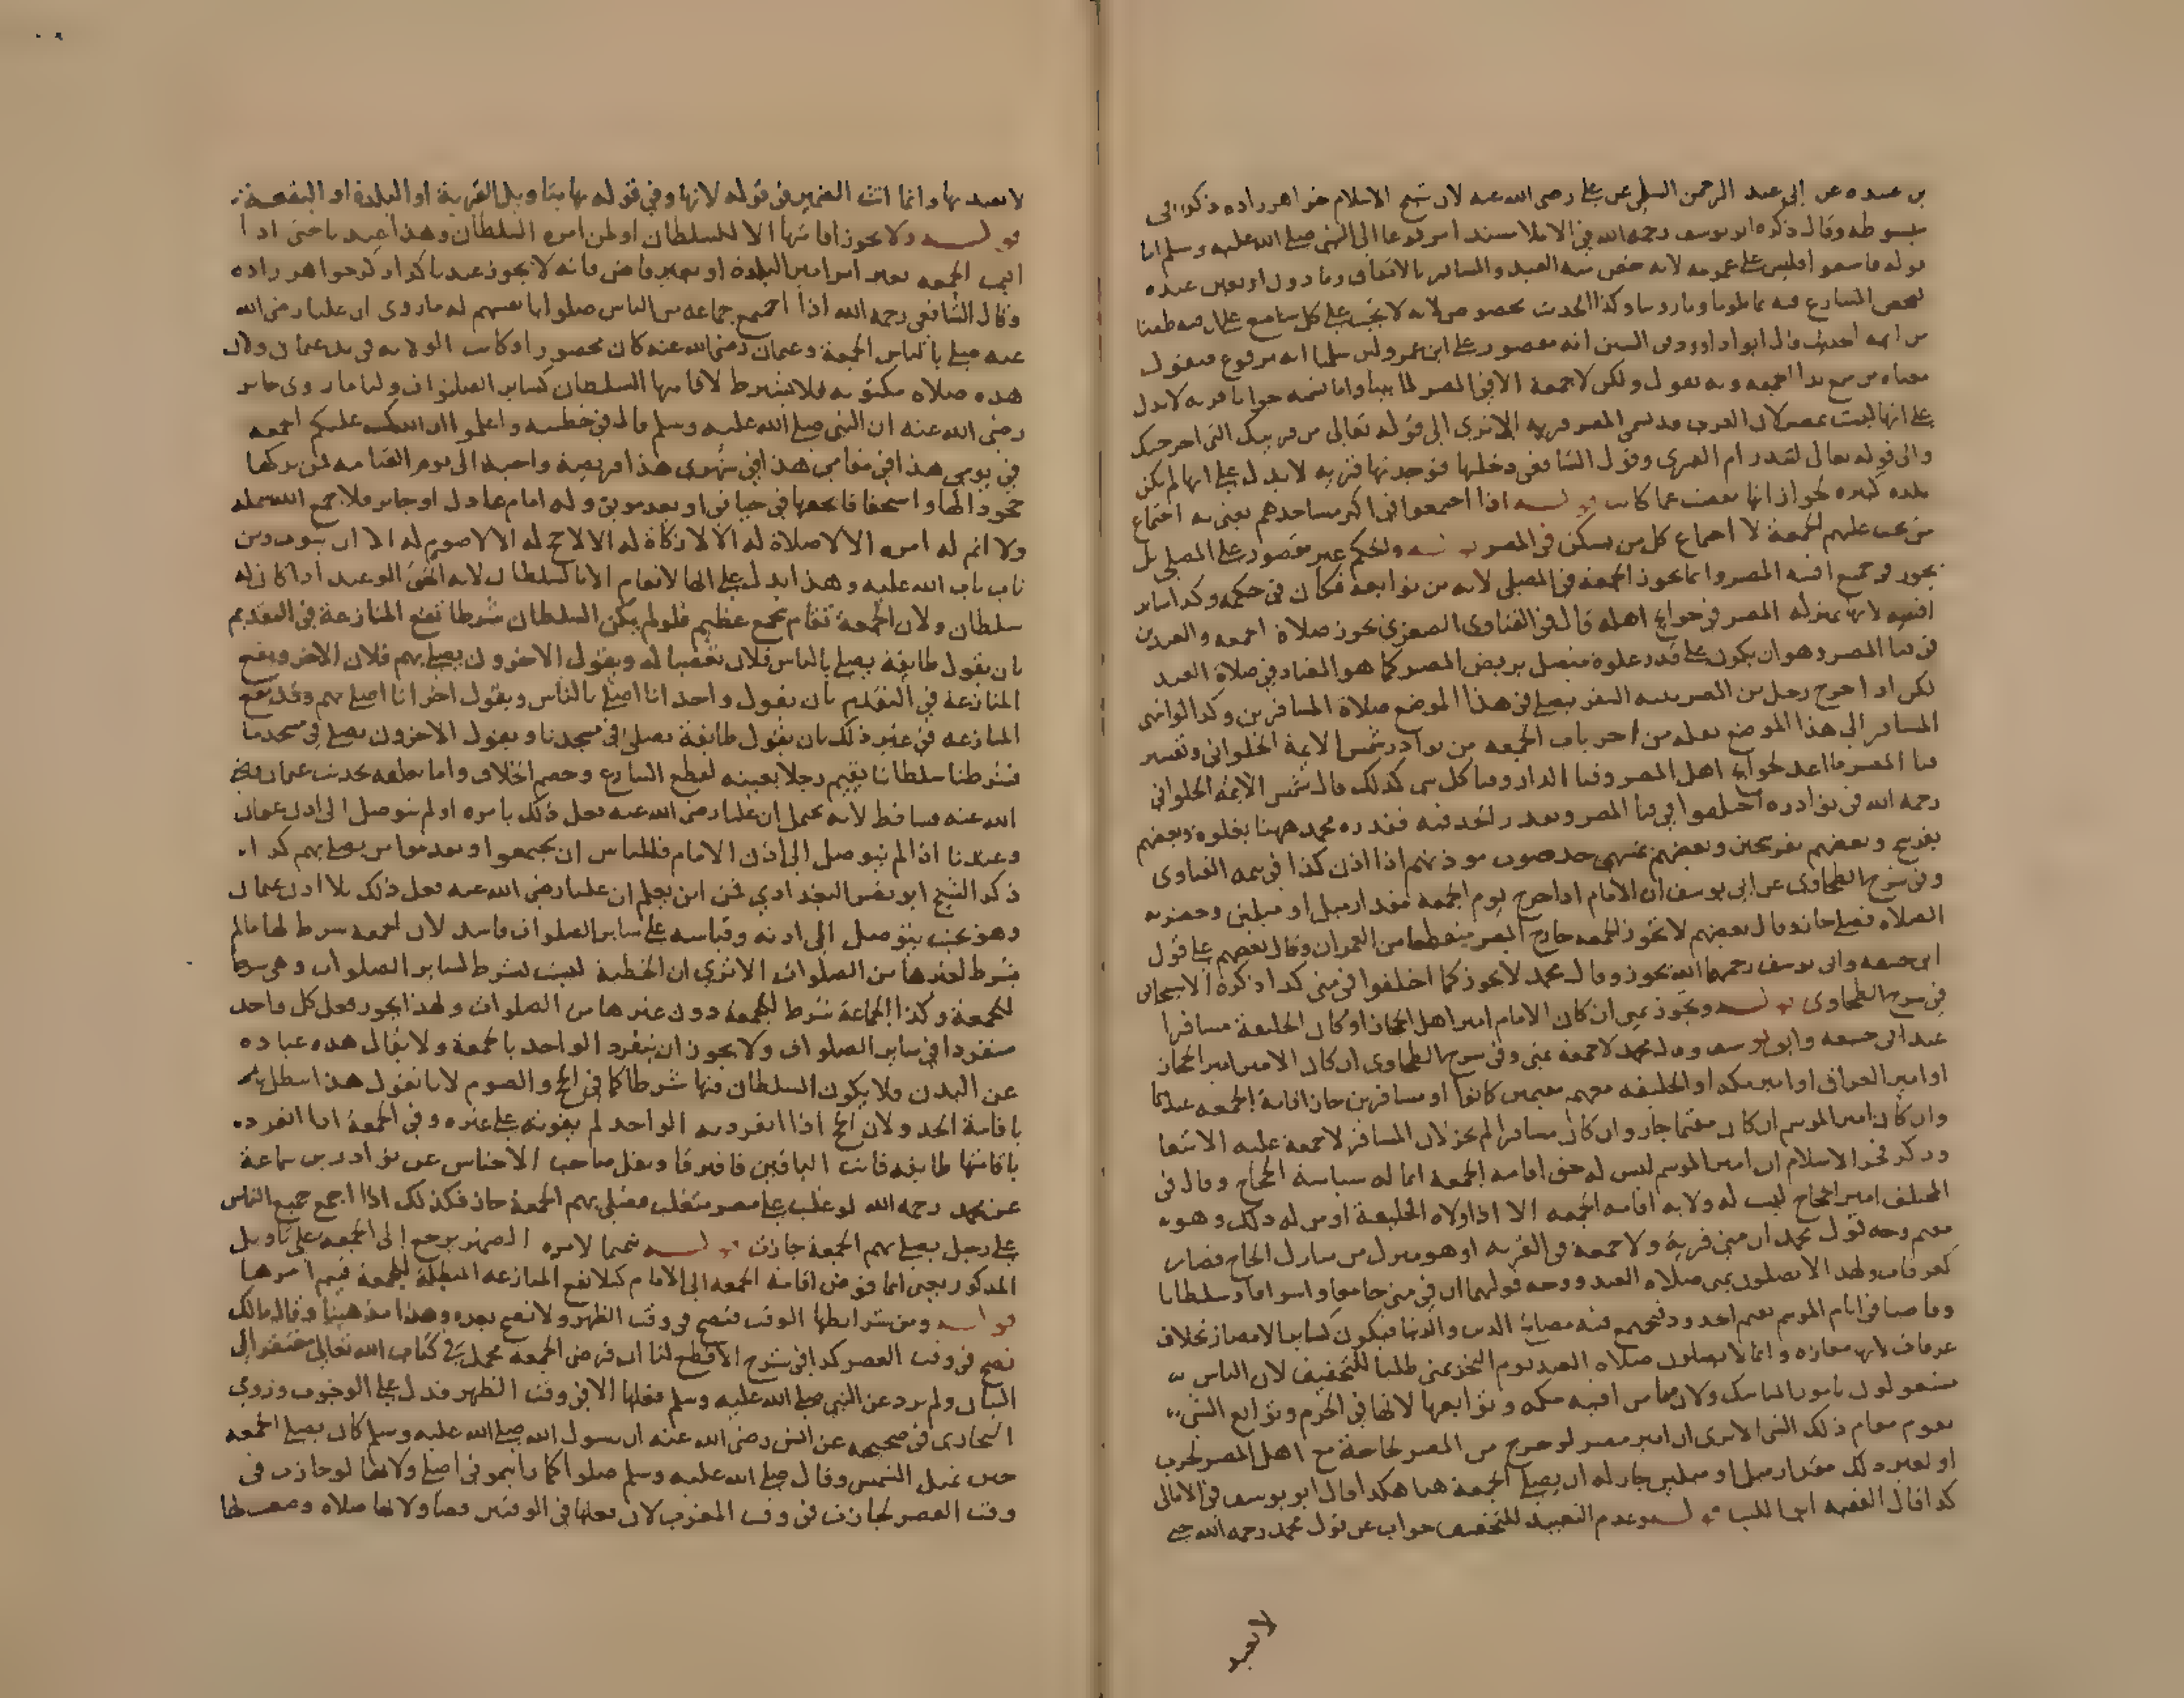 بن عبيده عن ابي عبد الرحمن السلمي عن علي رضي الله عنه لان شيخ الاسلام خواهر زاده ذكر في
مبسوطه وقال ذكره ابو يوسف رحمه الله في الاملا مسندا مرفوعا الى النبي صلى الله عليه وسلم اما
قوله فاسعوا فليس على عمومه لانه خص منه العبد والمسافر بالاتفاق وما دون اربعين عنده
من ايمة الحديث قال ابو داود في السنن انه مقصور على ابن عمر ولين سلمنا انه مرفوع فنقول
معناه من سمع ندا الجمعه وبه نقول ولكن لا جمعة الا في المصر لما بينا واما تسميه جواثا قريه لا يدل
على انها ليست بمصر لان العرب قد تسمي المصر قريه الا ترى الى قوله تعالى من قريتك التي اخرجتك
والى قوله تعالى لتنذر ام القرى وقول الشافعي دخلتها فوجدتها قريه لا يدل على انها لم تكن
بلده كبيره لجواز انها نقصت عما كانت قوله اذا اجتمعوا في اكبر مساجدهم يعني به اجتماع
من يجب عليهم الجمعة لا اجتماع كل من يسكن في المصر قوله والحكم غير مقصور على المصلى بل
يجوز في جميع افنيه المصر وانما يجوز الجمعة في المصلى لانه من توابعه فكان في حكمه وكذا ساير
افنيه لانها بمنزله المصر في حوائج اهله قال في الفتاوى الصغرى يجوز صلاة الجمعه والعيدين
في فنا المصر وهو ان يكون على قدر غلوة متصل بربض المصر كما هو المعتاد في صلاة العيد
لكن اذا خرج رجل من المصر بنيه السفر يصلي في هذا الموضع صلاة المسافرين وكذا لو انتهى
المسافر الى هذا الموضع نقله من اخر باب الجمعه من نوادر شمس الايمة الحلواني وتفسير
فنا المصر ما اعد لحوائج اهل المصر وفنا الدار وفنا كل شي كذلك قال شمس الايمة الحلواني
رحمه الله في نوادره اختلفوا في فنا المصر وتقدير الحد فيه فقدره محمد ههنا بغلوة وبعضهم
بفرسخ وبعضهم بفرسخين وبعضهم بمنتهى حد صوت موذنهم اذا اذن كذا في تتمه الفتاوى
وفي شرح الطحاوى عن ابي يوسف ان الامام اذا خرج يوم الجمعه مقدار ميل او ميلين وحضرته
الصلاه فصلى جاز وقال بعضهم لا تجوز الجمعه خارج المصر منقطعا من العمران وقال بعضهم على قول
ابي حنيفه وابي يوسف رحمهما الله يجوز وقال محمد لا يجوز كما اختلفوا في منى كذا ذكره الاسبيجابي
في شرح الطحاوى قوله وتجوز بمنى ان كان الامام امير اهل الحجاز او كان الخليفة مسافرا
عند ابي حنيفه وابي يوسف وقال محمد لا جمعة بمنى وفي شرح الطحاوى ان كان الامير امير الحجاز
او امير العراق او امير مكه او الخليفه معهم مقيمين كانوا او مسافرين جاز اقامة الجمعه عندهما
وان كان امير الموسم ان كان مقيما جاز وان كان مسافرا لم يجز لان المسافر لا جمعة عليه الا تبعا
وذكر فخر الاسلام ان امير الموسم ليس له حق اقامه الجمعة انما له سياسة الحجاج وقال في
المختلف امير الحجاج ليست له ولايه اقامه الجمعه الا اذا ولاه الخليفة او من له ذلك وهو
مقيم وجه قول محمد ان منى قرية ولا جمعة في القريه او هو منزل من منازل الحاج فصار
كعرفات ولهذا لا يصلون بمنى صلاه العيد ووجه قولهما ان في منى جامعا واسواقا وسلطانا
وقاضيا في ايام الموسم تقيم الحدود فيجتمع فيه مصالح الدين والدنيا فيكون كساير الامصار بخلاف
عرفات لانها مفازه وانما لا يصلون صلاه العيد يوم النحر بمنى طلبا للتخفيف لان الناس
مشغولون بامور المناسك ولان منى من افنيه مكه وتوابعها لانها في الحرم وتوابع الشي
يقوم مقام ذلك الشي الا ترى ان امير مصر لو خرج من المصر لحاجة مع اهل المصر لحرب
او لغير ذلك مقدار ميل او ميلين جاز له ان يصلي الجمعة هنا هكذا قال ابو يوسف في الامالى
كذا قال الفقيه ابو الليث قوله وعدم التعييد للتخفيف جواب عن قول محمد رحمه الله حيث
لا يعيد
لا يعيد بها وانما انث الضمير في قوله لانها وفي قوله بها بتاويل القرية او البلدة او البقعة
قوله ولا يجوز اقامتها الا للسلطان او لمن امره السلطان وهذا عندنا حتى اذا
اقيمت الجمعه بغير امر امير البلدة او بغير قاض فانه لا يجوز عندنا كذا ذكر خواهر زاده
وقال الشافعي رحمه الله اذا اجتمع جماعه من الناس صلوا بانفسهم له ما روى ان عليا رضي الله
عنه صلى بالناس الجمعة وعثمان رضي الله عنه كان محصورا وكانت الولايه في يد عثمان ولان
هذه صلاه مكتوبه فلا يشترط لاقامتها السلطان كساير الصلوات ولنا ما روى جابر
رضي الله عنه ان النبي صلى الله عليه وسلم قال في خطبته واعلموا ان الله كتب عليكم الجمعه
في يومي هذا في مقامي هذا في شهرى هذا فريضة واجبة الى يوم القيامه فمن تركها
جحودا لها واستخفافا بحقها في حياتي او بعد موتي وله امام عادل او جاير فلا جمع الله شمله
ولا اتم له امره الا لا صلاة له الا لا زكاة له الا لا حج له الا لا صوم له الا ان يتوب ومن
تاب تاب الله عليه وهذا يدل على انها لا تقام الا بالسلطان لانه الحق الوعيد اذا كان له
سلطان ولان الجمعة تقام بجمع عظيم فلو لم يكن السلطان شرطا تقع المنازعة في التقديم
بان يقول طايفة يصلي بالناس فلان تعصبا له ويقول الاخرون يصلي بهم فلان الاخر ويقع
المنازعة في التقدم بان يقول واحد انا اصلي بالناس ويقول اخر انا اصلي بهم وقد يقع
المنازعه في غير ذلك بان يقول طائفة نصلي في مسجدنا ويقول الاخرون نصلي في مسجدنا
فشرطنا سلطانا يقيم رجلا بعينه لقطع التنازع وحسم الخلاف واما تعلقه بحديث عثمان رضي
الله عنه فساقط لانه يحتمل ان عليا رضي الله عنه فعل ذلك بامره او لم يتوصل الى اذن عثمان
وعندنا اذا لم يتوصل الى اذن الامام فللناس ان يجتمعوا ويقدموا من يصلي بهم كذا
ذكر الشيخ ابو نصر البغدادي فمن اين يعلم ان عليا رضي الله عنه فعل ذلك بلا اذن عثمان
وهو بحيث يتوصل الى اذنه وقياسه على ساير الصلوات فاسد لان الجمعه شرط لها ما لم
يشرط لغيرها من الصلوات الا ترى ان الخطبة ليست بشرط لساير الصلوات وهي شرط
للجمعة وكذا الجماعة شرط للجمعة دون غيرها من الصلوات ولهذا يجوز فعل كل واحد
منفردا في ساير الصلوات ولا يجوز ان ينفرد الواحد بالجمعة ولا يقال هذه عباده
عن البدن فلا يكون السلطان فيها شرطا كما في الحج والصوم لانا نقول هذا يبطل
باقامة الحد ولان الحج اذا انفرد به الواحد لم يفوته على غيره وفي الجمعة اذا انفرد
باقامتها طايفه فاتت الباقين فافترقا ونقل صاحب الاجناس عن نوادر بن سماعة
عن محمد رحمه الله لو غلب على مصر متغلب فصلى بهم الجمعة جاز فكذلك اذا اجمع جميع الناس
على رجل يصلي بهم الجمعة جازت قوله تتميما لامره الضمير يرجع الى الجمعه على تاويل
المذكور يعني انما فوض اقامة الجمعه الى الامام كيلا تقع المنازعه المبطلة للجمعة فيتم امرها
قوله ومن شرايطها الوقت فتصح في وقت الظهر ولا تصح بعده وهذا مذهبنا وقال مالك
تصح في وقت العصر كذا في شرح الاقطع لنا ان فرض الجمعة مجمل في كتاب الله تعالى مفتقر الى
البيان ولم يرد عن النبي صلى الله عليه وسلم فعلها الا في وقت الظهر فدل على الوجوب وروى
البخارى في صحيحه عن انس رضي الله عنه ان رسول الله صلى الله عليه وسلم كان يصلي الجمعه
حين تميل الشمس وقال صلى الله عليه وسلم صلوا كما رايتموني اصلي ولانها لو جازت في
وقت العصر لجازت في وقت المغرب لان فعلها في الوقتين قضا ولانها صلاه وضعت لها